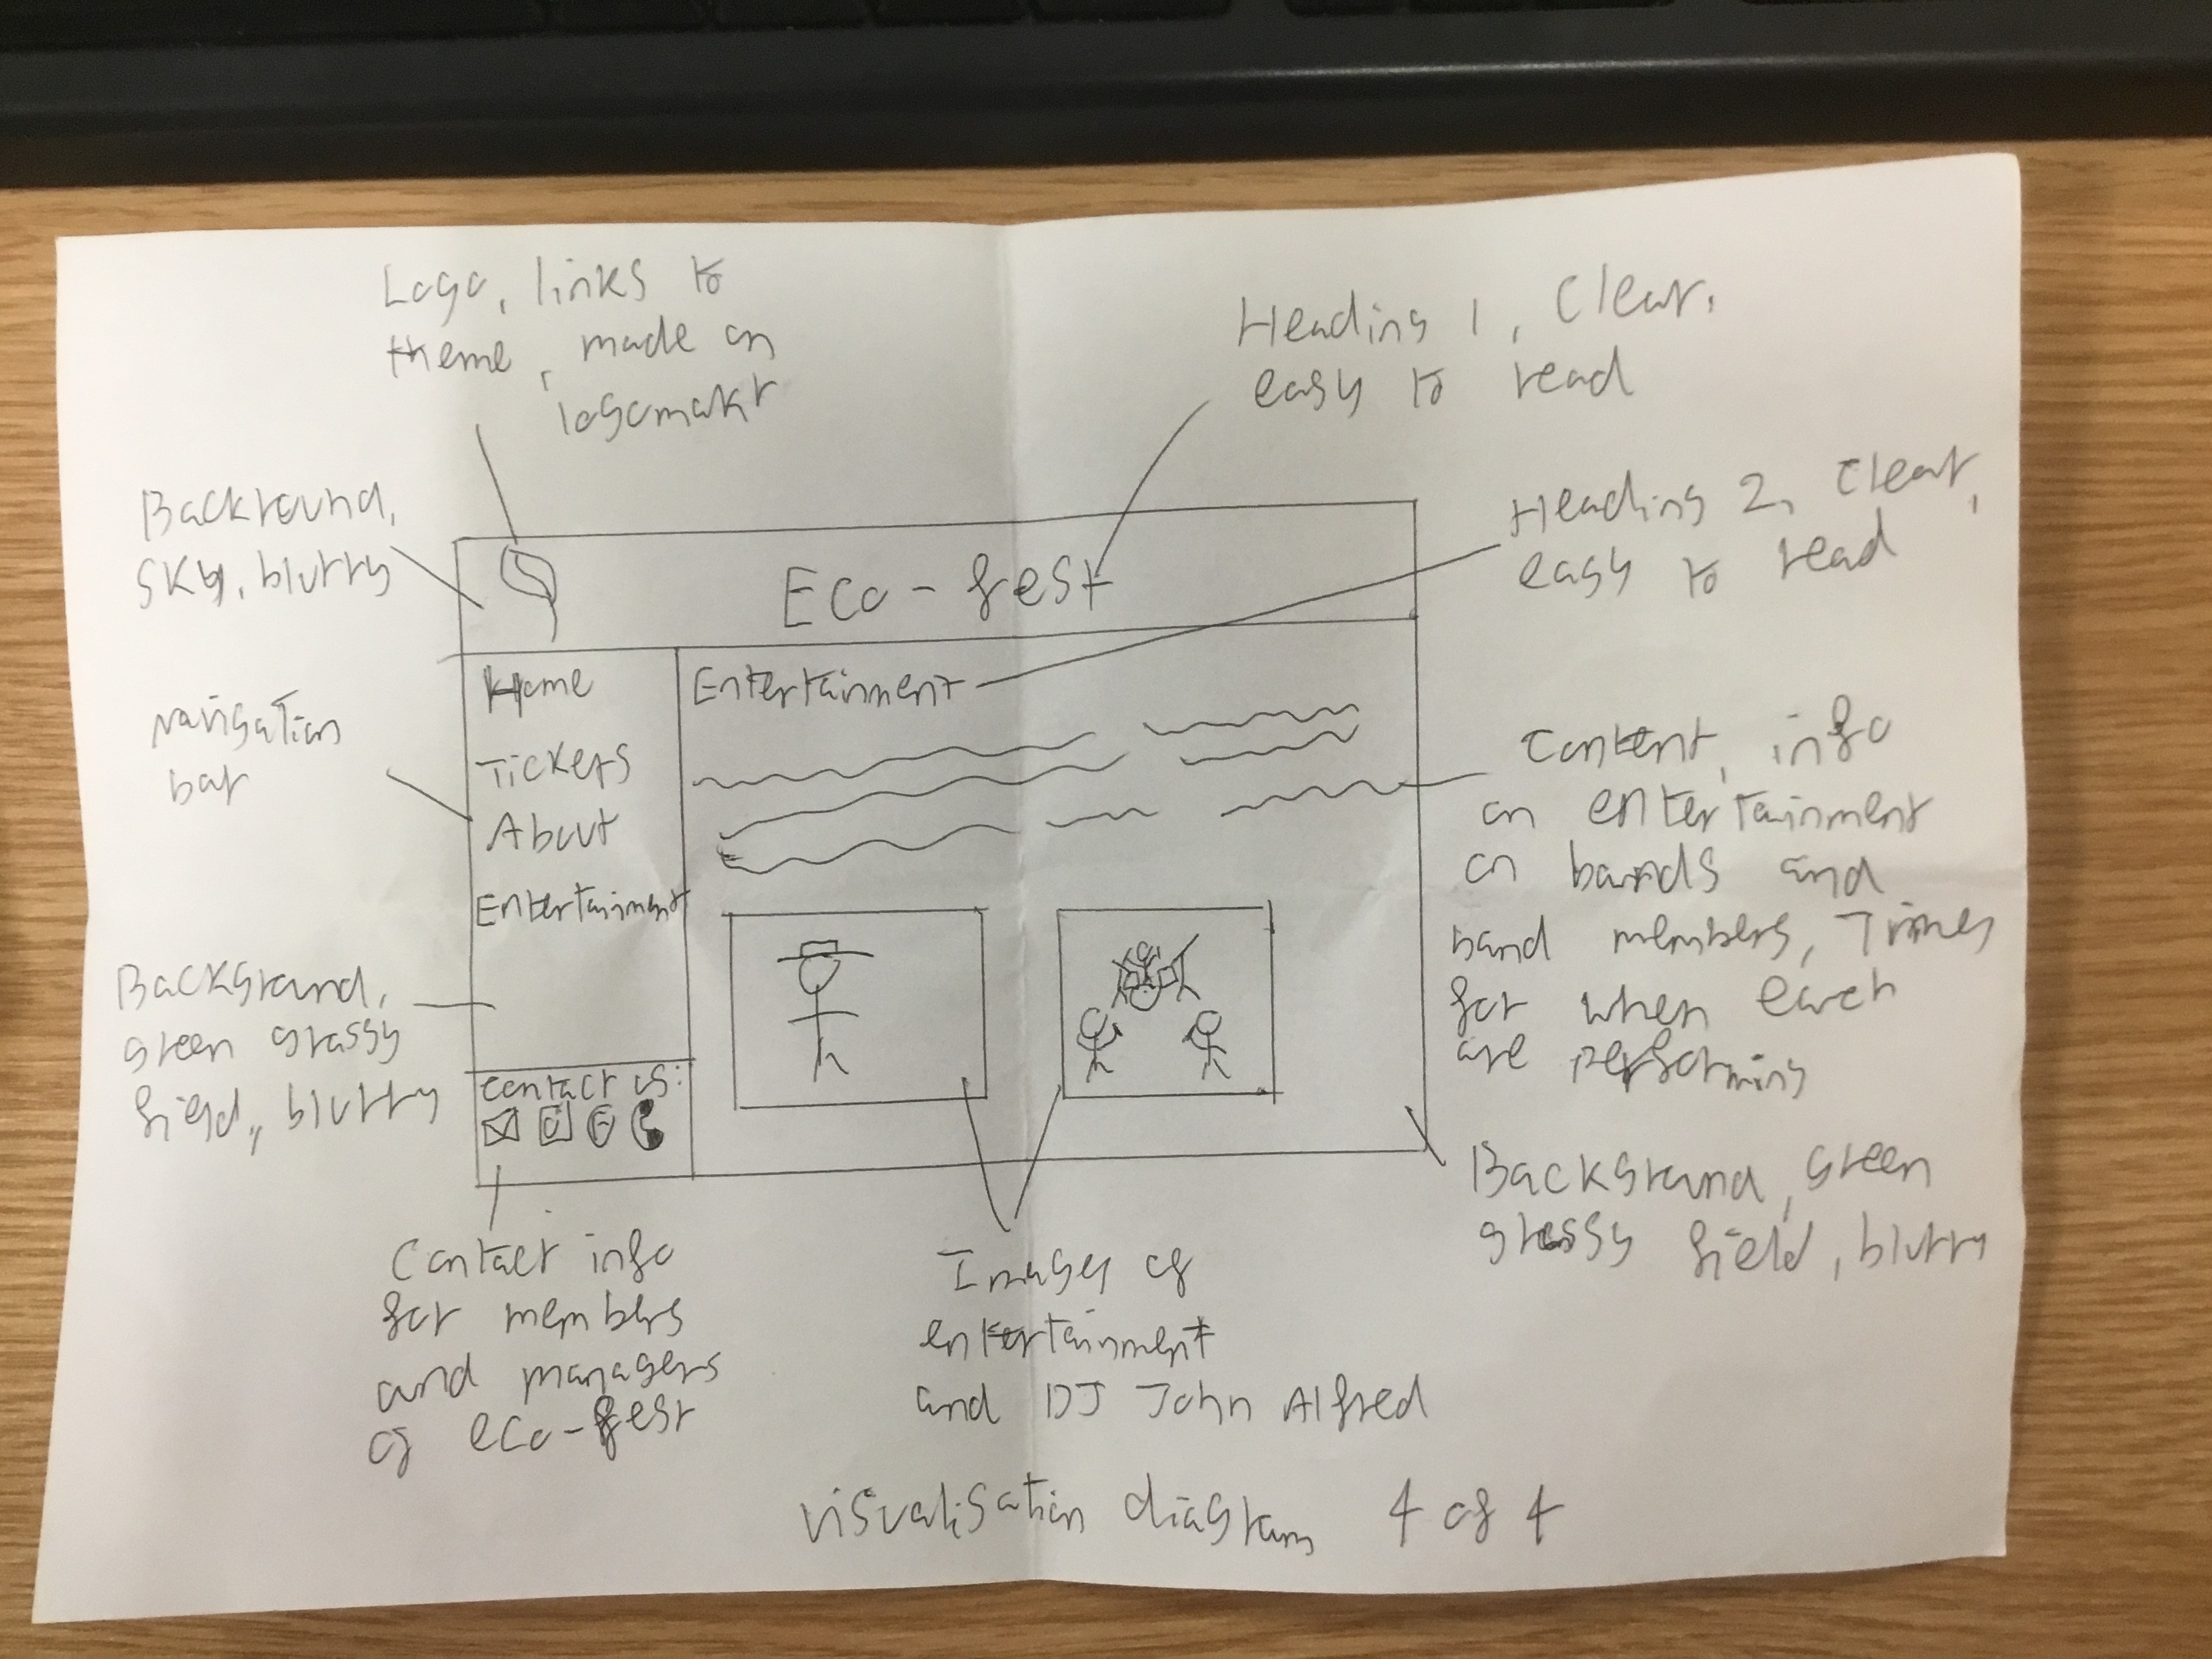 Logo, links to
theme, made on
logomakr
Heading 1, Clear,
easy to read
Backround,
sky, blurry
Heading 2, Clear,
easy to read
Eco-fest
Navigation
bar
Home
Tickets
About
Entertainment
Entertainment
Content, info
on entertainment
on bands and
band members, Times
for when each
are performing
Background,
green grassy
field, blurry
Contact us:
Background, green
grassy field, blurry
Contact info
for members
and managers
of eco-fest
Images of
entertainment
and DJ John Alfred
Visualisation diagram 4 of 4